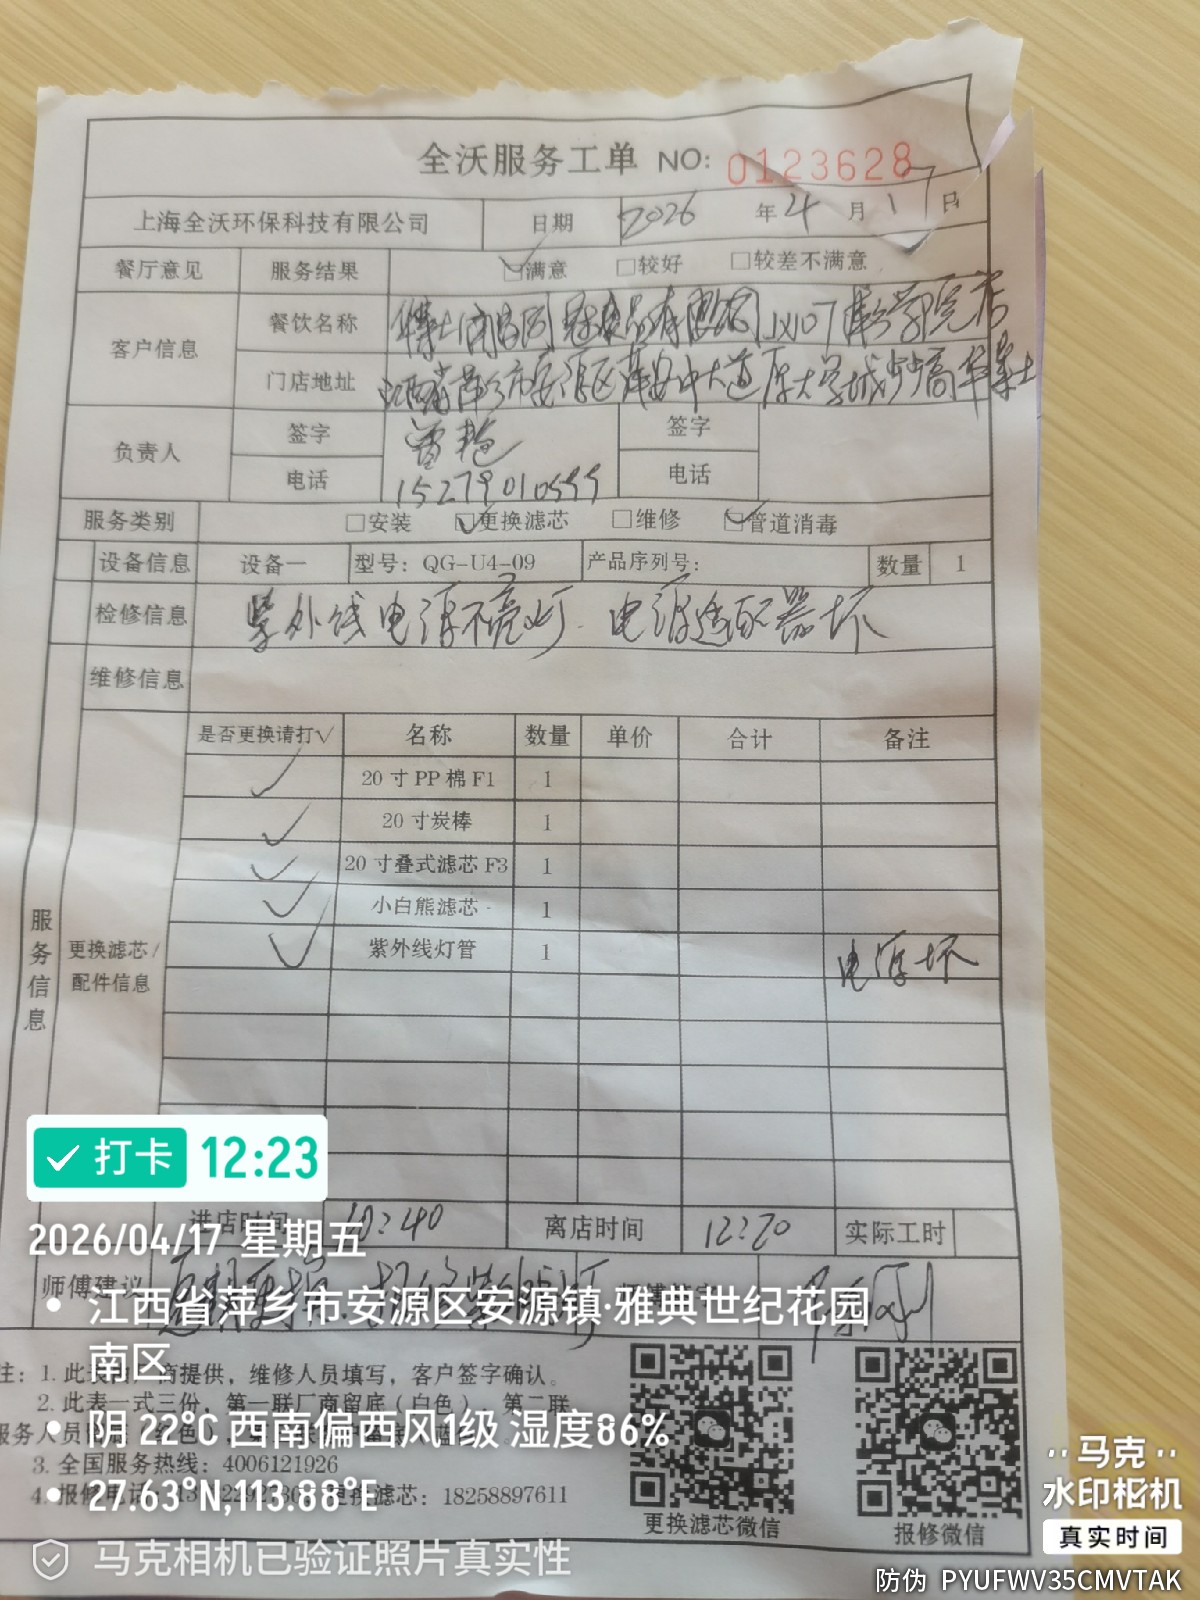 全沃服务工单 NO: 0123628
上海全沃环保科技有限公司 日期 2026 年 4 月 17 日
餐厅意见 服务结果 ☑满意 □较好 □较差不满意
客户信息 餐饮名称 JX107 学院店
门店地址 江西省萍乡市安源区萍安中大道 大学城 华莱士
负责人 签字 曾艳 签字
电话 15279010599 电话
服务类别 □安装 ☑更换滤芯 □维修 ☑管道消毒
设备信息 设备一 型号: QG-U4-09 产品序列号: 数量 1
检修信息 紫外线电源不亮灯. 电源适配器坏
维修信息
是否更换请打√ 名称 数量 单价 合计 备注
✓ 20寸PP棉F1 1
✓ 20寸炭棒 1
✓ 20寸叠式滤芯F3 1
✓ 小白熊滤芯 1
✓ 紫外线灯管 1 电源坏
服务信息
更换滤芯/
配件信息
进店时间 10:40 离店时间 12:20 实际工时
师傅建议 紫外线灯
注: 1. 此表由厂商提供，维修人员填写，客户签字确认。
2. 此表一式三份，第一联厂商留底（白色），第二联
服务人员
3. 全国服务热线: 4006121926
4. 报修电话 更换滤芯: 18258897611
更换滤芯微信 报修微信
打卡 12:23
2026/04/17 星期五
• 江西省萍乡市安源区安源镇·雅典世纪花园
南区
• 阴 22℃ 西南偏西风1级 湿度86%
• 27.63°N,113.88°E
马克相机已验证照片真实性
马克
水印相机
真实时间
防伪 PYUFWV35CMVTAK